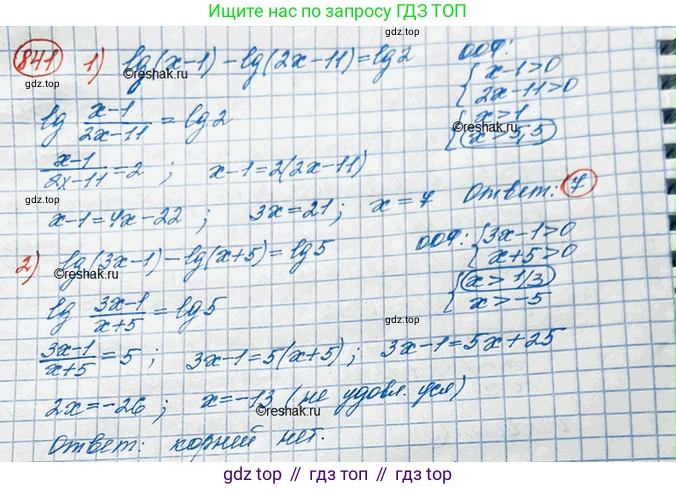 Ищите нас по запросу ГДЗ ТОП
841 1) lg(x-1) - lg(2x-11) = lg2 ООФ:
{ x-1>0
2x-11>0
lg (x-1)/(2x-11) = lg2 { x>1
x>5,5
(x-1)/(2x-11) = 2 ; x-1=2(2x-11)
x-1=4x-22 ; 3x=21 ; x=7 Ответ: 7
2) lg(3x-1) - lg(x+5) = lg5 ООФ: { 3x-1>0
x+5>0
lg (3x-1)/(x+5) = lg5 { x>1/3
x>-5
(3x-1)/(x+5) = 5 ; 3x-1=5(x+5) ; 3x-1=5x+25
2x=-26 ; x=-13 (не удовл. усл)
Ответ: корней нет.
©reshak.ru
©reshak.ru
©reshak.ru
©reshak.ru
gdz.top
gdz.top
gdz.top
gdz.top
gdz.top
gdz.top
gdz.top // гдз.топ // гдз.top